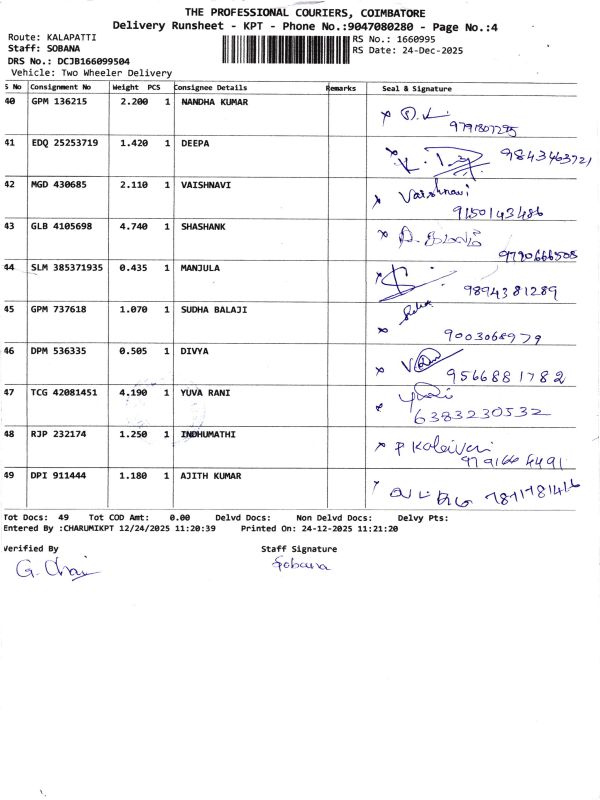 THE PROFESSIONAL COURIERS, COIMBATORE
Delivery Runsheet - KPT - Phone No.:9047080280 - Page No.:4
Route: KALAPATTI
RS No.: 1660995
Staff: SOBANA
RS Date: 24-Dec-2025
DRS No.: DCJB166099504
Vehicle: Two Wheeler Delivery
S No Consignment No Weight PCS Consignee Details Remarks Seal & Signature
40 GPM 136215 2.200 1 NANDHA KUMAR
9791807295
41 EDQ 25253719 1.420 1 DEEPA 9843463721
42 MGD 430685 2.110 1 VAISHNAVI Vaishnavi
9150143486
43 GLB 4105698 4.740 1 SHASHANK
9790666505
44 SLM 385371935 0.435 1 MANJULA
9894381289
45 GPM 737618 1.070 1 SUDHA BALAJI
9003068979
46 DPM 536335 0.505 1 DIVYA
9566881782
47 TCG 42081451 4.190 1 YUVA RANI
6383230532
48 RJP 232174 1.250 1 INDHUMATHI P Kaleiveni
979166 4491
49 DPI 911444 1.180 1 AJITH KUMAR
Tot Docs: 49 Tot COD Amt: 0.00 Delvd Docs: Non Delvd Docs: Delvy Pts:
Entered By :CHARUMIKPT 12/24/2025 11:20:39 Printed On: 24-12-2025 11:21:20
Verified By Staff Signature
G. Chai Sobana